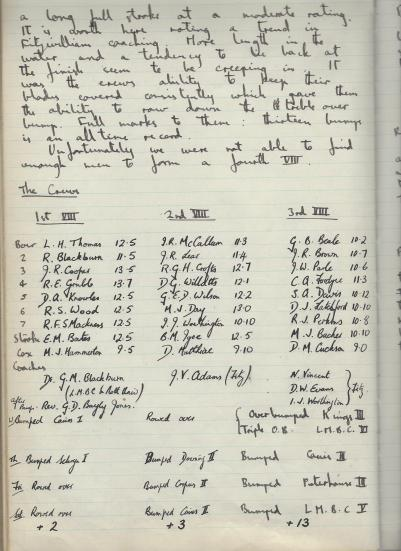 a long full stroke at a moderate rating.
It is worth here noting a trend in
Fitzwilliam coaching. More length in the
water and a tendency to lie back at
the finish seem to be creeping in. It
was the crews ability to keep their
blades covered consistently which gave them
the ability to row down the treble over
bump. Full marks to them: thirteen bumps
is an all time record.
Unfortunately we were not able to find
enough men to form a fourth VIII.
The Crews
1st VIII 2nd VIII 3rd VIII
Bow L.H. Thomas 12.5 J.R. McCallum 11.3 G.B. Beale 10.2
2 R. Blackburn 11.5 J.R. Lear 11.4 J.R. Brown 10.7
3 J.R. Cooper 13.5 R.G.H. Crofts 12.7 J.W. Parle 10.6
4 R.E. Grubb 13.7 D.G. Willetts 12.1 C.A. Fordyce 11.3
5 D.A. Knowles 12.5 G.E.D. Wilson 12.2 S.A. Davis 10.12
6 R.S. Wood 12.5 M.J. Day 13.0 D.J. 10.9
7 R.F.S. Mackness 12.5 J.J. Worthington 10.10 R.J. Perkins 10.8
Stroke E.M. Bates 12.5 B.M. 12.5 M.J. Backer 10.10
Cox M.J. Hammerton 9.5 D. Matthiae 9.10 D.M. Cuckson 9.0
Coaches
Dr. G.M. Blackburn J.V. Adams (Fitz) N. Vincent
(L.M.B.C. D.W. Evans Fitz.
Rev. G.D. I.J. Worthington
W Bumped Caius I Rowed over Overbumped Kings III
Triple O.B. L.M.B.C. VI
Th Bumped Selwyn I Bumped Downing II Bumped Caius III
Fri Rowed over Bumped Corpus II Bumped Peterhouse III
Sat Rowed over Bumped Caius II Bumped L.M.B.C V
+2 +3 +13